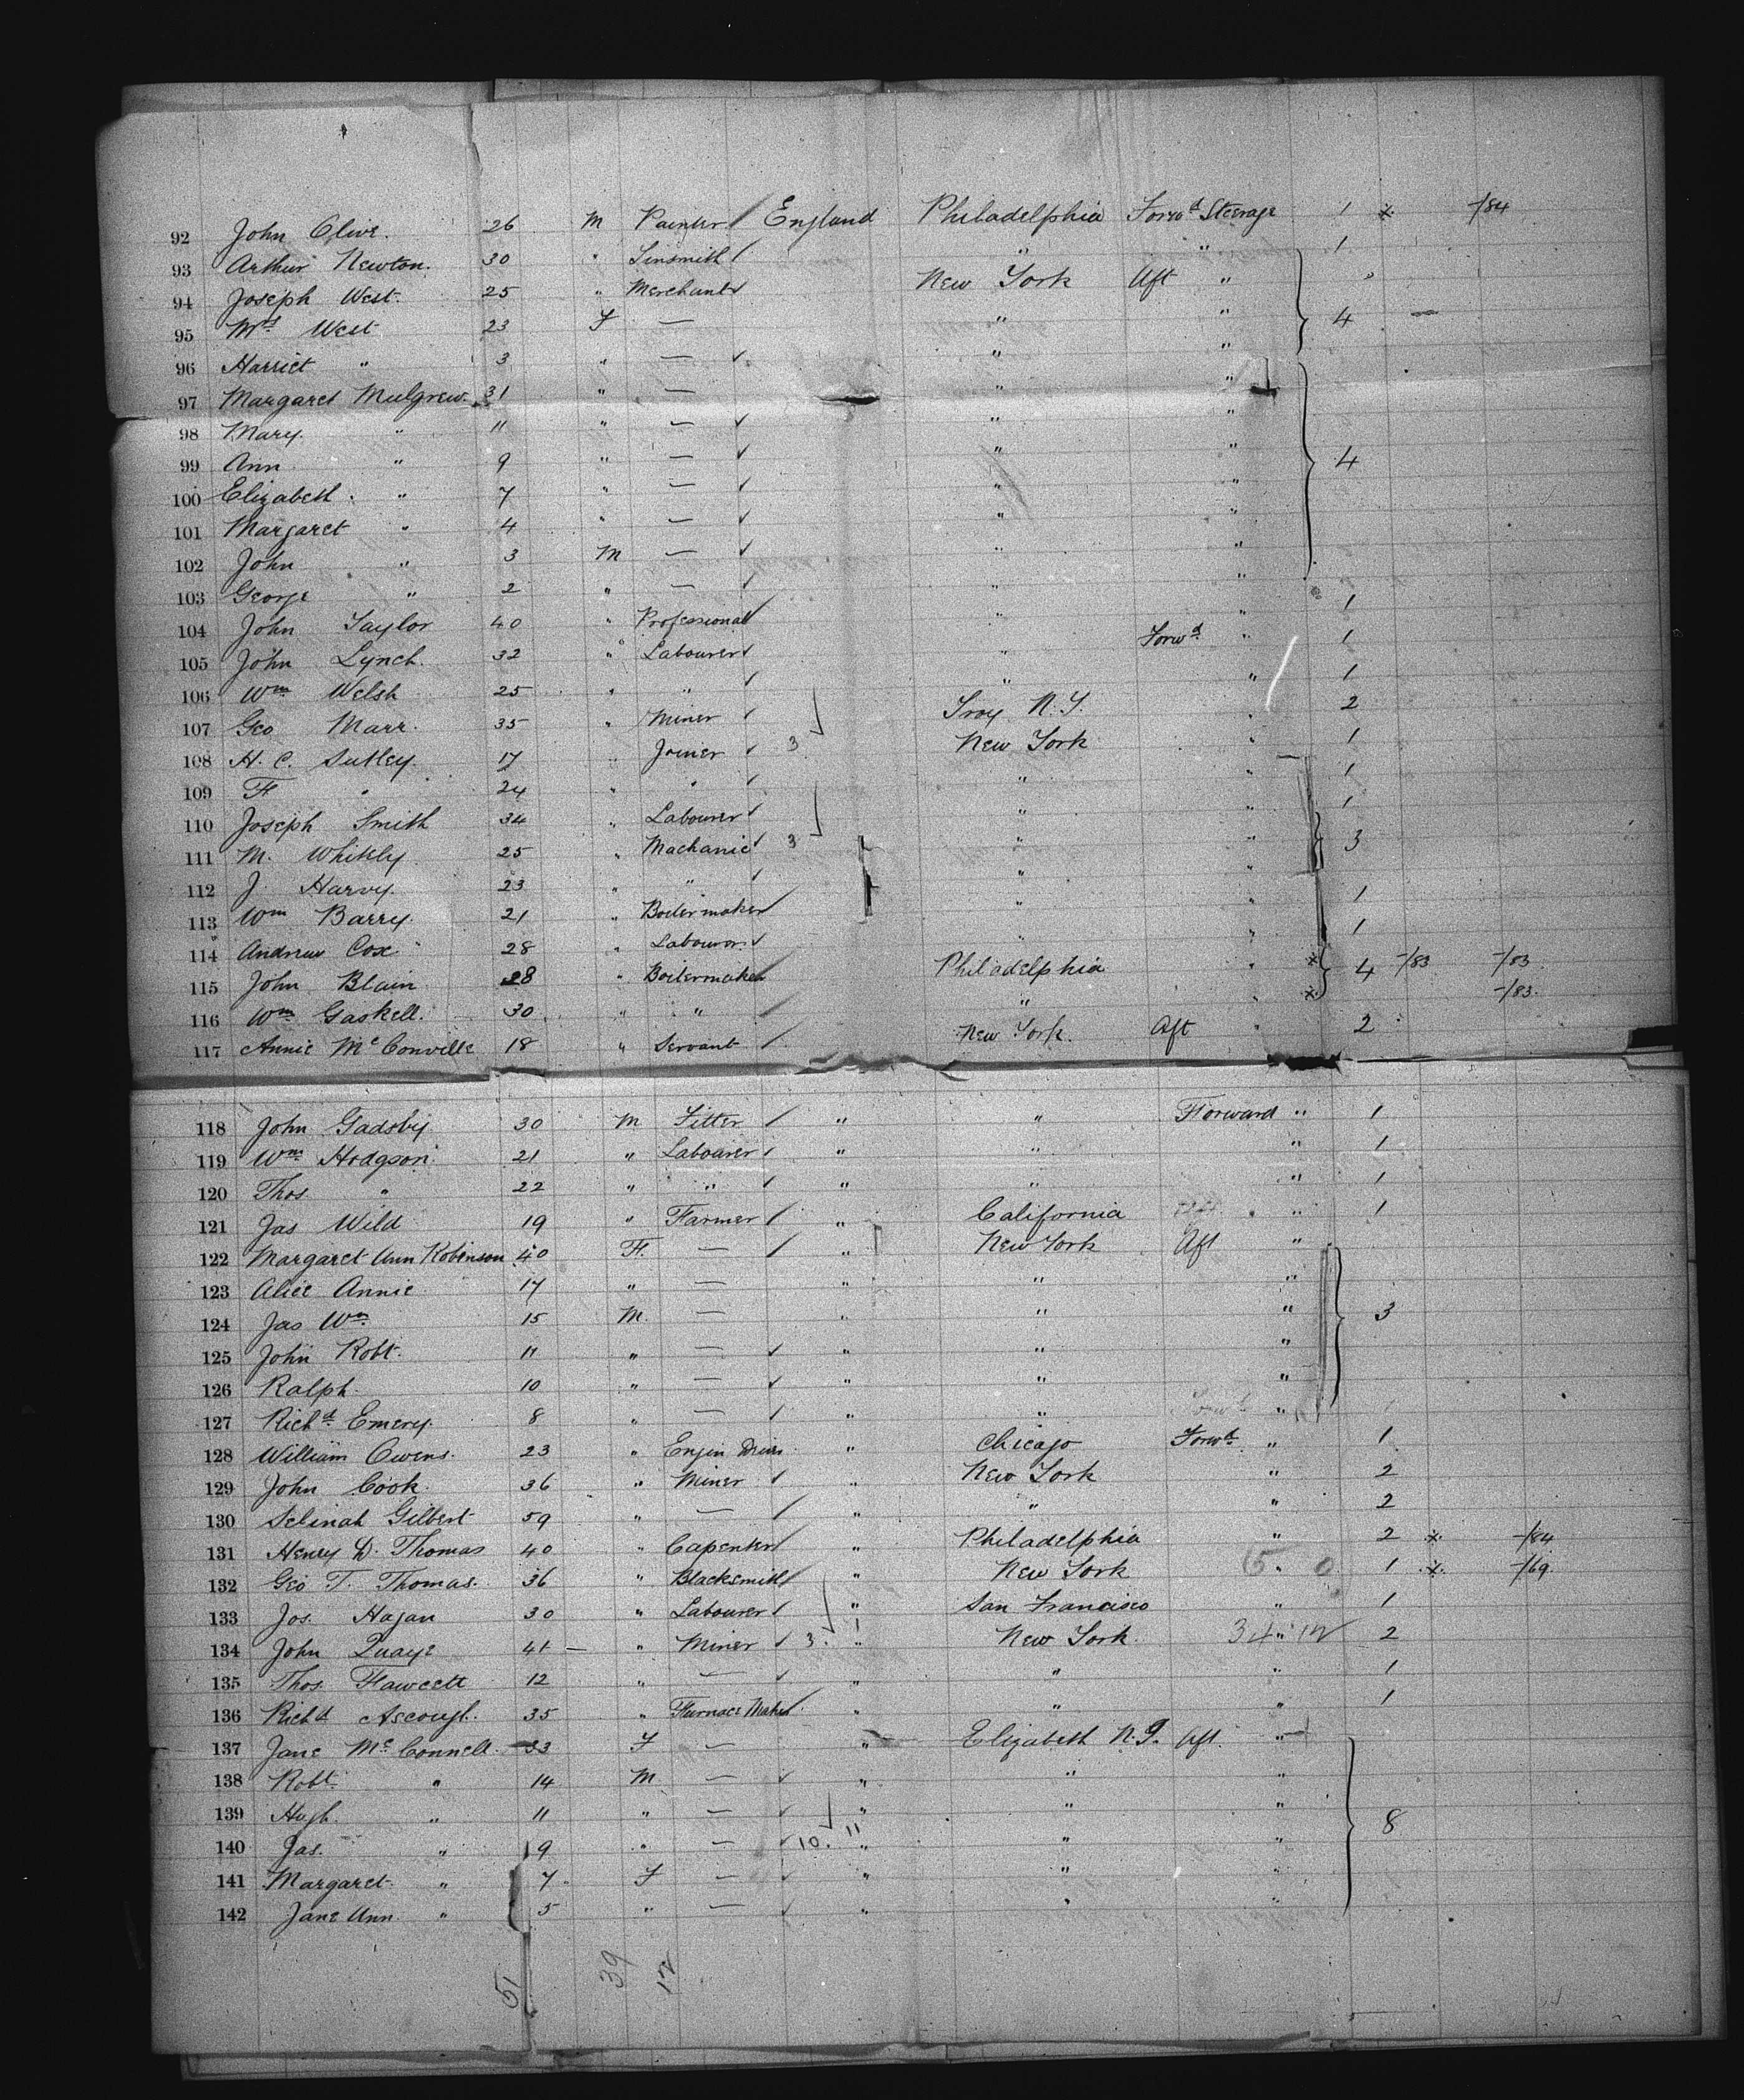 92 John Olive. 26 M Painter England Philadelphia Forwd Steerage 1 x -/84
93 Arthur Newton. 30 " Tinsmith " " 1
94 Joseph West. 25 " Merchant New York Aft "
95 Mrs West 23 F — " " 4 —
96 Harriet " 3 " — " "
97 Margaret Mulgrew. 31 " — " "
98 Mary. " 11 " — " "
99 Ann " 9 " — " " 4
100 Elizabeth " 7 " — " "
101 Margaret " 4 " — " "
102 John " 3 M — " "
103 George " 2 " — " " 1
104 John Taylor 40 " Professional " " 1
105 John Lynch. 32 " Labourer " Forwd " 1
106 Wm Welsh 25 " " " " 1
107 Geo Marr. 35 " Miner Troy N.Y. " 2
108 H. C. Sutley 17 " Joiner 3 New York " 1
109 F " 24 " " " " 1
110 Joseph Smith 34 " Labourer " " 1
111 M. Whitely 25 " Machanic 3 " " 3
112 J. Harvy. 23 " " " "
113 Wm Barry. 21 " Boilermaker " " 1
114 Andrew Cox 28 " Labouror. " " 1
115 John Blain 28 " Boilermaker Philadelphia " x 4 -/83 -/83
116 Wm Gaskell. 30 " " " " x -/83.
117 Annie McConville 18 " Servant New York. Aft " 2
118 John Gadsby 30 M Fitter " " Forward " 1
119 Wm Hodgson 21 " Labourer " " " 1
120 Thos " 22 " " " " " 1
121 Jas Wild 19 " Farmer " California " 1
122 Margaret Ann Robinson 40 F. — " New York Aft "
123 Alice Annie 17 " — " " "
124 Jas Wm 15 M. — " " " 3
125 John Robt. 11 " — " " "
126 Ralph. 10 " — " " "
127 Richd Emery. 8 " — " " "
128 William Owens. 23 " Engin Driver " Chicago Forwd. " 1
129 John Cook. 36 " Miner " New York " 2
130 Selinah Gilbert 59 " — " " " 2
131 Henry D. Thomas 40 " Capenter " Philadelphia " 2 x -/84
132 Geo T. Thomas. 36 " Blacksmith " New York " 1 x -/69
133 Jos. Hagan 30 " Labourer " San Francisco " 1
134 John Quaye 41 — " Miner 3. " New York. 34 " 12 2
135 Thos. Fawcett 12 " — " " " 1
136 Richd Ascough. 35 " Furnace Maker " " " 1
137 Jane McConnell. 33 F — " Elizabeth N.J. Aft. "
138 Robt. " 14 M — " " "
139 Hugh. " 11 " — " " "
140 Jas. " 9 " — 10. " " " 8
141 Margaret. " 7 F — " " "
142 Jane Ann. " 5 " — " " "
51 39 12